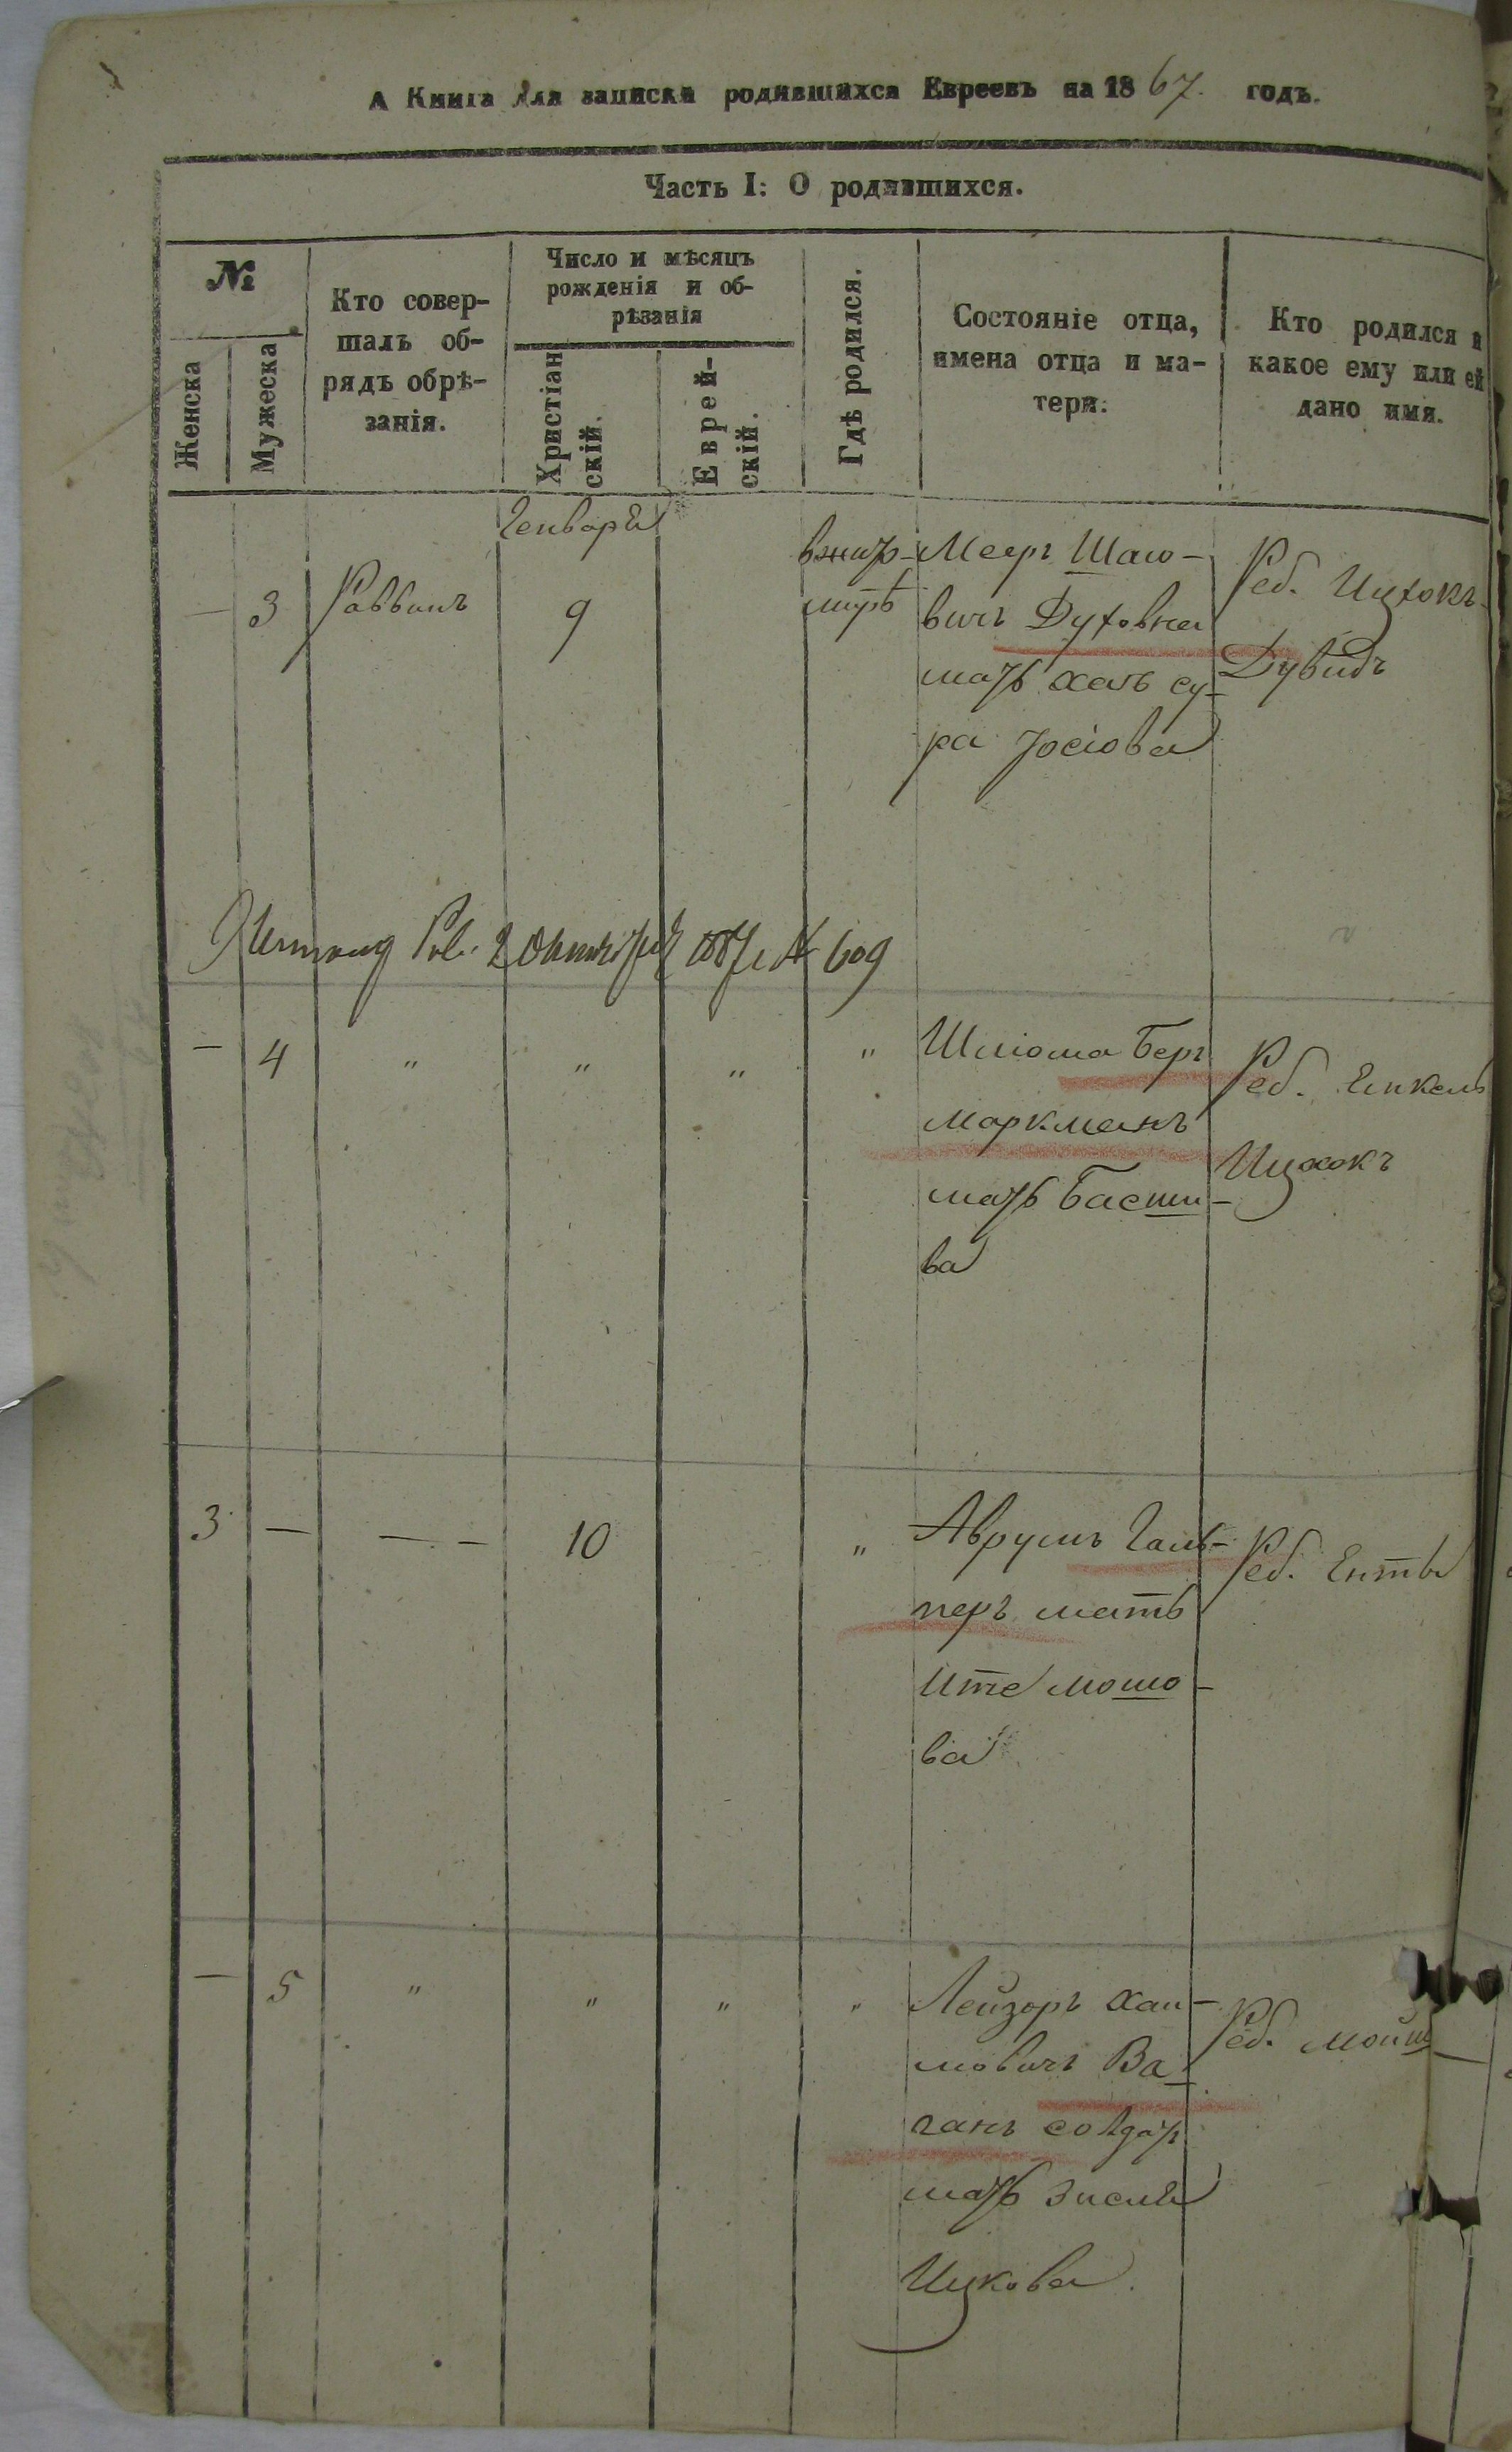 А Книга для записки родившихся Евреевъ на 1867. годъ.
Часть I: О родившихся.
№
Женска
Мужеска
Кто совер-
шалъ об-
рядъ обрѣ-
занія.
Число и мѣсяцъ
рожденія и об-
рѣзанія
Христіан
скій.
Еврей-
скій.
Гдѣ родился.
Состояніе отца,
имена отца и ма-
тери:
Кто родился и
какое ему или ей
дано имя.
Генваря
— 3 Раввинъ 9
Мееръ Шаю-
вичъ Духовна
мать Хая Су-
ра Іосіова
Реб. Ицхокъ
Дувидъ
2 Октября № 609
— 4 " " " "
Шлiома Беръ
Маркманъ
мать Басши-
ва
Реб. Енкель
Ицхокъ
3 — — - 10 "
Аврумъ Галь-
перъ мать
Ите Мошо-
ва
Реб. Ента
— 5 " " " "
Лейзоръ Хаи-
мовичъ Ва-
ганъ солдат
мать Зисля
Ицкова.
Реб. Мойш